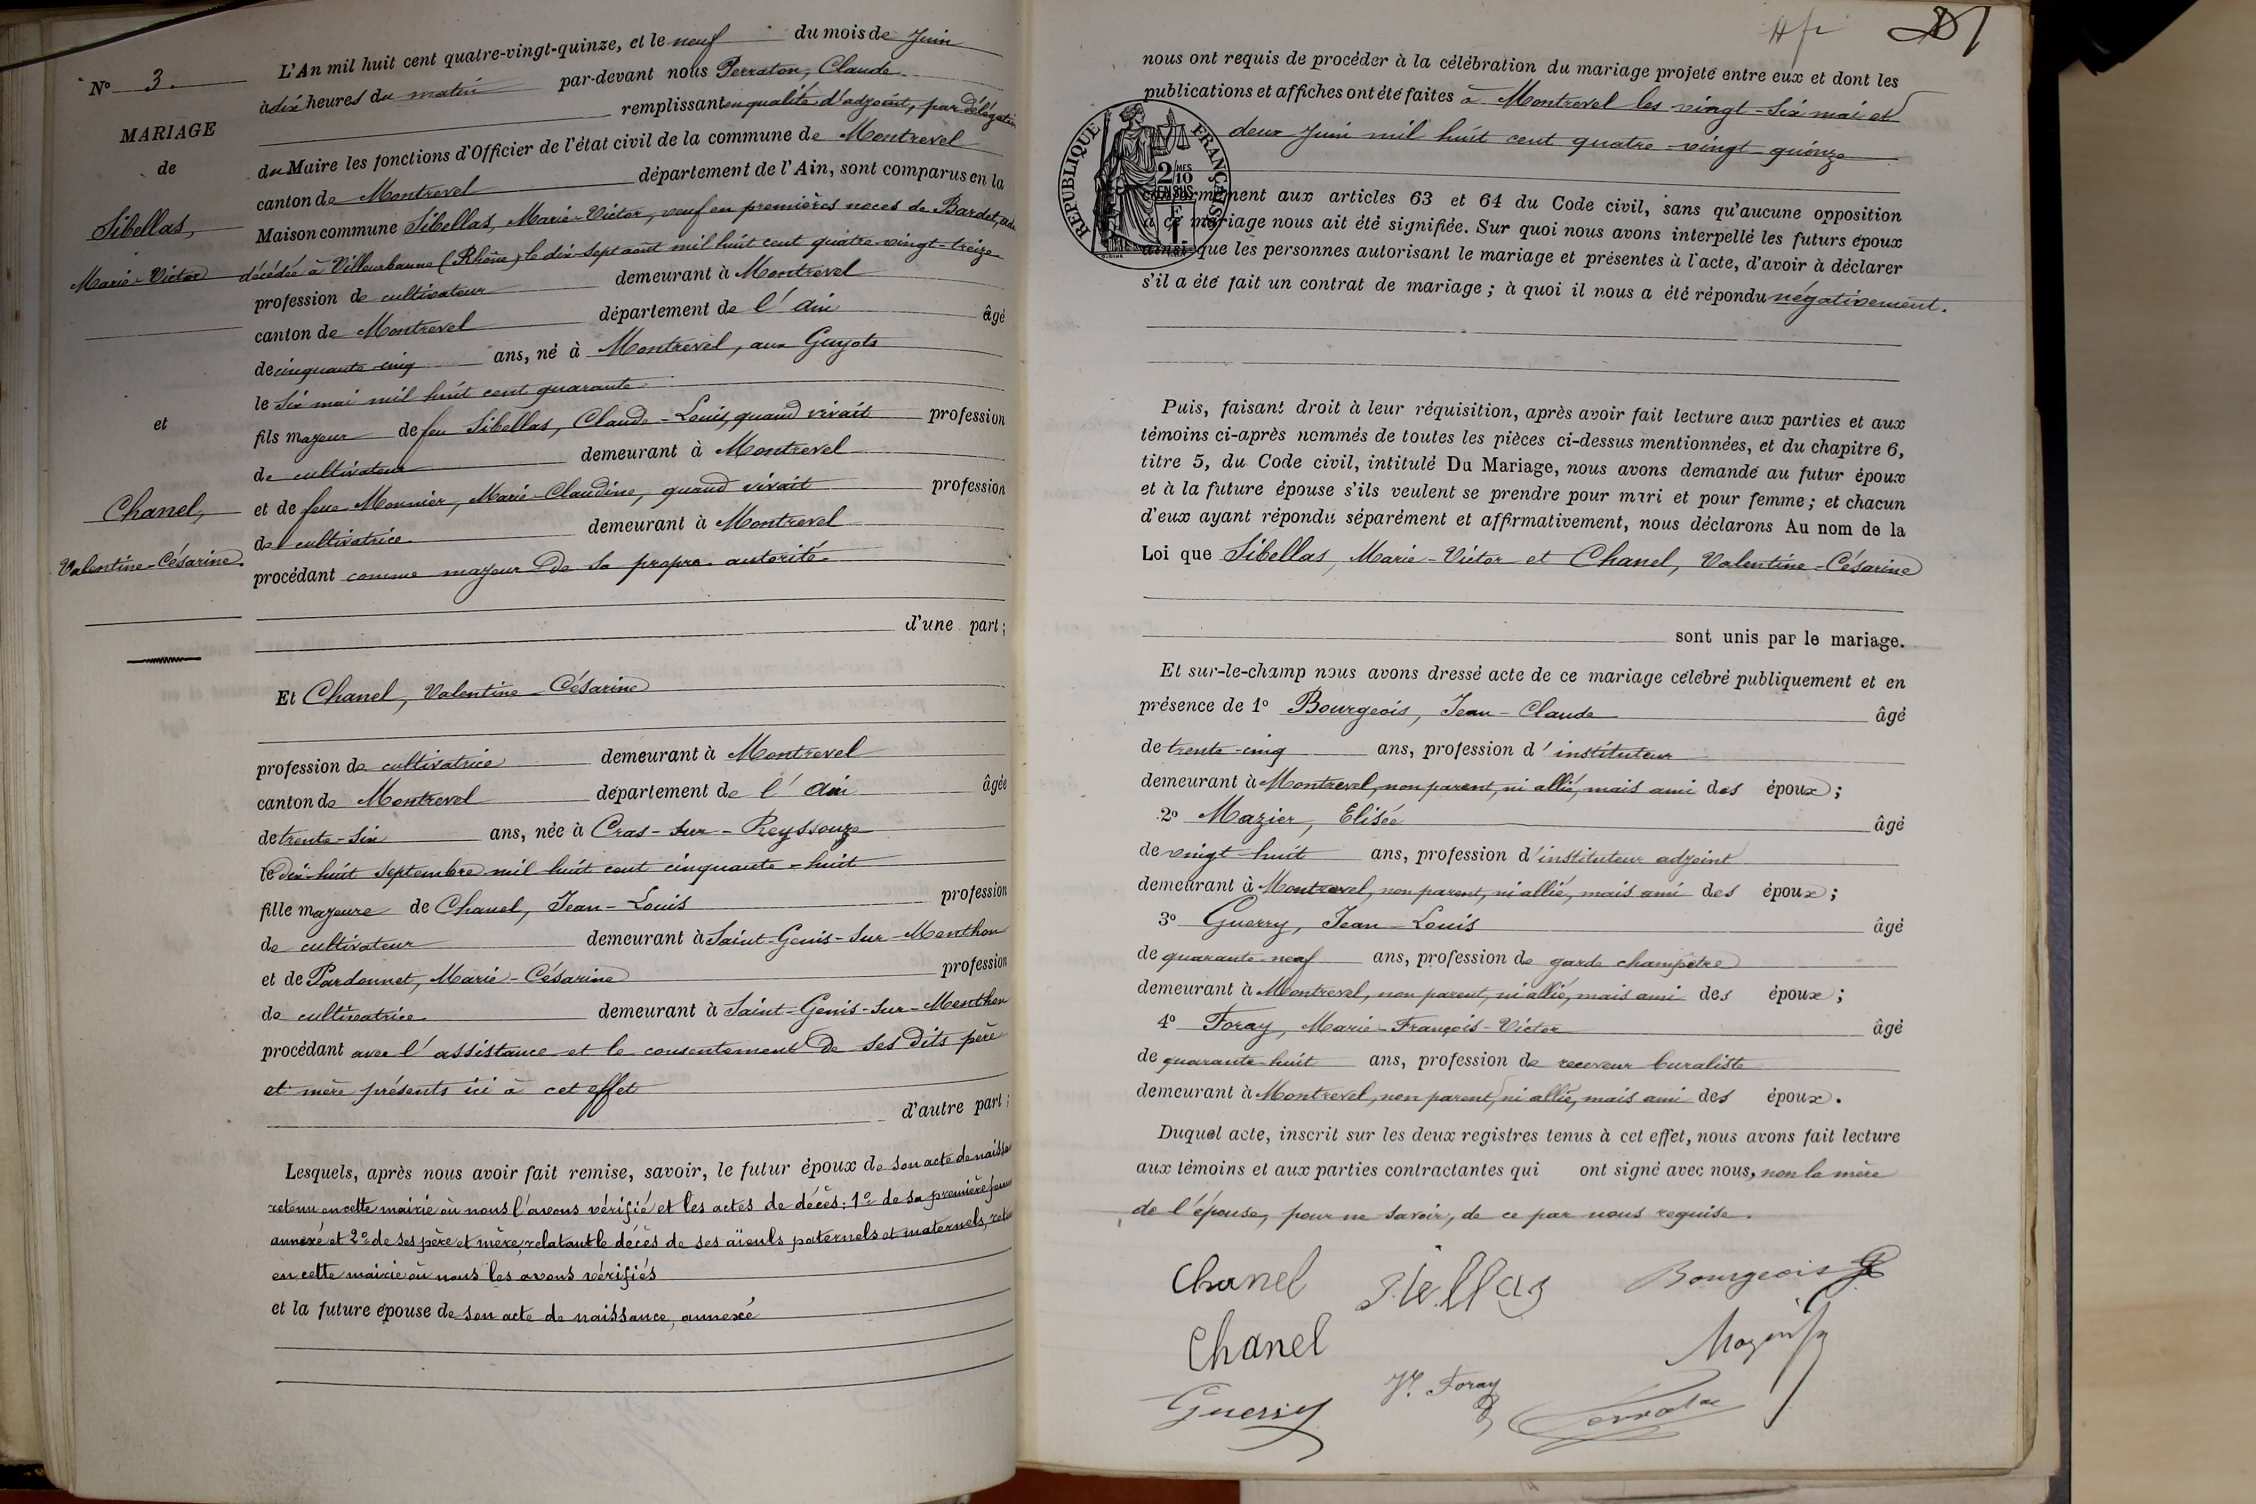 N° 3.
MARIAGE
de
Sibellas,
Marie-Victor
et
Chanel,
Valentine-Césarine.
L'An mil huit cent quatre-vingt-quinze, et le neuf du mois de Juin
à dix heures du matin par-devant nous Perraton, Claude
remplissant en qualité d'adjoint, par délégation
du Maire les fonctions d'Officier de l'état civil de la commune de Montrevel
canton de Montrevel département de l'Ain, sont comparus en la
Maison commune Sibellas, Marie-Victor, veuf en premières noces de Bardet,
décédée à Villeurbanne (Rhône) le dix-sept août mil huit cent quatre-vingt-treize
profession de cultivateur demeurant à Montrevel
canton de Montrevel département de l'Ain âgé
de cinquante-cinq ans, né à Montrevel, aux Guyots
le six mai mil huit cent quarante
fils majeur de feu Sibellas, Claude-Louis, quand vivait profession
de cultivateur demeurant à Montrevel
et de feue Mounier, Marie-Claudine, quand vivait profession
de cultivatrice demeurant à Montrevel
procédant comme majeur de sa propre autorité
d'une part;
Et Chanel, Valentine-Césarine
profession de cultivatrice demeurant à Montrevel
canton de Montrevel département de l'Ain âgée
de trente-six ans, née à Cras-sur-Reyssouze
le dix-huit septembre mil huit cent cinquante-huit
fille majeure de Chanel, Jean-Louis profession
de cultivateur demeurant à Saint-Genis-sur-Menthon
et de Pardonnet, Marie-Césarine profession
de cultivatrice demeurant à Saint-Genis-sur-Menthon
procédant avec l'assistance et le consentement de ses dits père
et mère présents ici à cet effet
d'autre part;
Lesquels, après nous avoir fait remise, savoir, le futur époux de son acte de naissa
retenu en cette mairie où nous l'avons vérifié et les actes de décès: 1° de sa première femme
annexé et 2° de ses père et mère, relatant le décès de ses aïeuls paternels et maternels,
en cette mairie où nous les avons vérifiés
et la future épouse de son acte de naissance, annexé
nous ont requis de procéder à la célébration du mariage projeté entre eux et dont les
publications et affiches ont été faites à Montrevel les vingt-six mai et
deux Juin mil huit cent quatre-vingt-quinze
RÉPUBLIQUE FRANÇAISE
2/10 EN SUS
conformément aux articles 63 et 64 du Code civil, sans qu'aucune opposition
à ce mariage nous ait été signifiée. Sur quoi nous avons interpellé les futurs époux
ainsi que les personnes autorisant le mariage et présentes à l'acte, d'avoir à déclarer
s'il a été fait un contrat de mariage; à quoi il nous a été répondu négativement.
Puis, faisant droit à leur réquisition, après avoir fait lecture aux parties et aux
témoins ci-après nommés de toutes les pièces ci-dessus mentionnées, et du chapitre 6,
titre 5, du Code civil, intitulé Du Mariage, nous avons demandé au futur époux
et à la future épouse s'ils veulent se prendre pour mari et pour femme; et chacun
d'eux ayant répondu séparément et affirmativement, nous déclarons Au nom de la
Loi que Sibellas, Marie-Victor et Chanel, Valentine-Césarine
sont unis par le mariage.
Et sur-le-champ nous avons dressé acte de ce mariage célébré publiquement et en
présence de 1° Bourgeois, Jean-Claude âgé
de trente-cinq ans, profession d'instituteur
demeurant à Montrevel, non parent, ni allié, mais ami des époux;
2° Mazier, Elisée âgé
de vingt-huit ans, profession d'instituteur adjoint
demeurant à Montrevel, non parent, ni allié, mais ami des époux;
3° Guerry, Jean-Louis âgé
de quarante-neuf ans, profession de garde champêtre
demeurant à Montrevel, non parent, ni allié, mais ami des époux;
4° Foray, Marie-François-Victor âgé
de quarante-huit ans, profession de receveur buraliste
demeurant à Montrevel, non parent, ni allié, mais ami des époux.
Duquel acte, inscrit sur les deux registres tenus à cet effet, nous avons fait lecture
aux témoins et aux parties contractantes qui ont signé avec nous, non la mère
de l'épouse, pour ne savoir, de ce par nous requise.
Chanel Sibellas Bourgeois
Chanel
Vr. Foray
Guerry